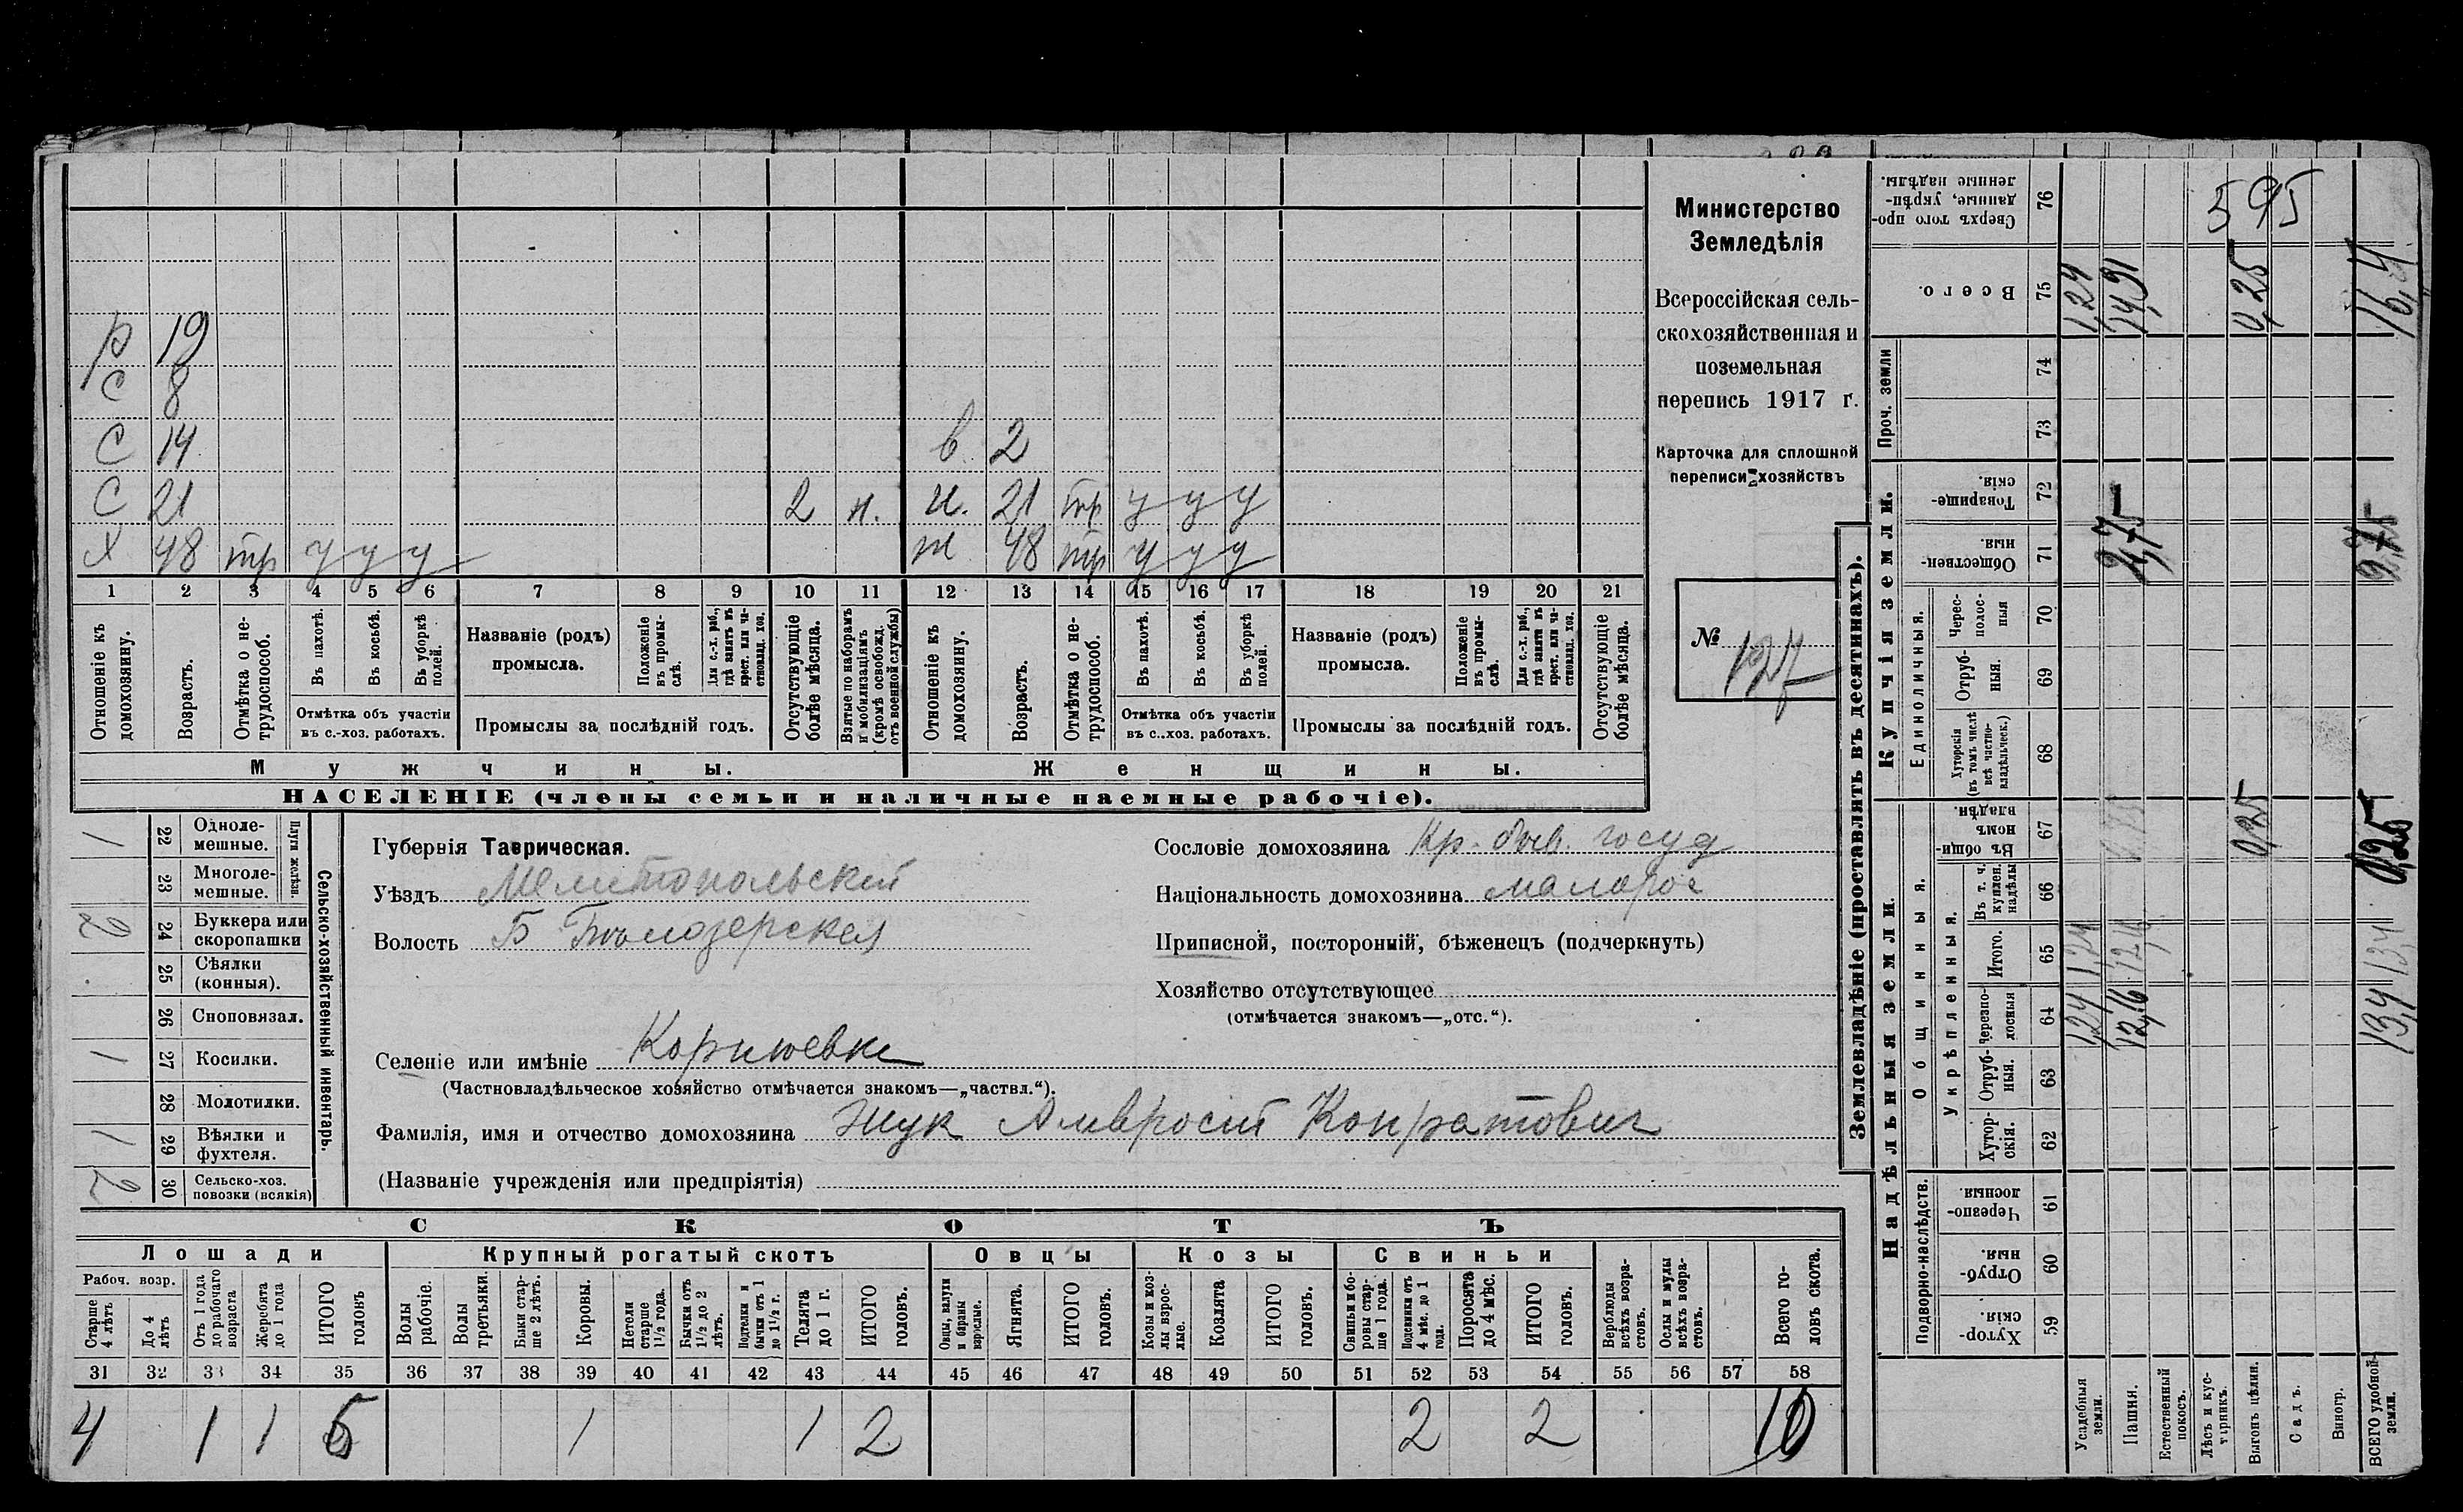 595
Министерство
Земледѣлія
Всероссійская сель-
скохозяйственная и
поземельная
перепись 1917 г.
Карточка для сплошной
переписи хозяйствъ
№ 127
р 19
с 8
с 14 в 2
с 21 2 н. н. 21 тр у у у
х 48 тр у у у ж 48 тр у у у
1 2 3 4 5 6 7 8 9 10 11 12 13 14 15 16 17 18 19 20 21
Отношеніе къ домохозяину.
Возрастъ.
Отмѣтка о не-трудоспособ.
Въ пахотѣ.
Въ косьбѣ.
Въ уборкѣ полей.
Отмѣтка объ участіи
въ с.-хоз. работахъ.
Названіе (родъ)
промысла.
Положеніе въ промы-слѣ.
Для с.-х. раб., гдѣ занятъ въ крест. или ча-стновлад. хоз.
Промыслы за послѣдній годъ.
Отсутствующіе болѣе мѣсяца.
Взятые по наборамъ и мобилизаціямъ (кромѣ освобожд. отъ военной службы)
Отношеніе къ домохозяину.
Возрастъ.
Отмѣтка о не-трудоспособ.
Въ пахотѣ.
Въ косьбѣ.
Въ уборкѣ полей.
Отмѣтка объ участіи
въ с..хоз. работахъ.
Названіе (родъ)
промысла.
Положеніе въ промы-слѣ.
Для с.-х. раб., гдѣ заняты въ крест. или ча-стновлад. хоз.
Промыслы за послѣдній годъ.
Отсутствующіе болѣе мѣсяца.
Мужчины. Женщины.
НАСЕЛЕНІЕ (члены семьи и наличные наемные рабочіе).
Сельско-хозяйственный инвентарь.
Плуги желѣзн.
1 22 Одноле-мешные.
23 Многоле-мешные.
2 24 Буккера или скоропашки
25 Сѣялки (конныя).
26 Сноповязал.
1 27 Косилки.
28 Молотилки.
1 29 Вѣялки и фухтеля.
2 30 Сельско-хоз. повозки (всякія)
Губернія Таврическая.
Уѣздъ Мелитопольский
Волость Б Бѣлозерская
Селеніе или имѣніе
(Частновладѣльческое хозяйство отмѣчается знакомъ—„частвл.“).
Фамилія, имя и отчество домохозяина Жук Амвросий Конратович
(Названіе учрежденія или предпріятія)
Сословіе домохозяина Кр. быв. госуд
Національность домохозяина малорос
Приписной, посторонній, бѣженецъ (подчеркнуть)
Хозяйство отсутствующее
(отмѣчается знакомъ—„отс.“).
СКОТЪ
Лошади Крупный рогатый скотъ Овцы Козы Свиньи
Рабоч. возр.
Старше 4 лѣтъ
До 4 лѣтъ
Отъ 1 года до рабочаго возраста
Жеребята до 1 года
ИТОГО головъ
Волы рабочіе.
Волы третьяки.
Быки стар-ше 2 лѣтъ.
Коровы.
Нетели старше 1½ года.
Бычки отъ 1½ до 2 лѣтъ.
Подтелки и бычки отъ 1 до 1½ г.
Телята до 1 г.
ИТОГО головъ.
Овцы, валухи и бараны взрослые.
Ягнята.
ИТОГО головъ.
Козы и коз-лы взрос-лые.
Козлята
ИТОГО головъ.
Свиньи и бо-ровы стар-ше 1 года.
Подсвинки отъ 4 мѣс. до 1 года.
Поросята до 4 мѣс.
ИТОГО головъ.
Верблюды всѣхъ возра-стовъ.
Ослы и мулы всѣхъ возра-стовъ.
Всего го-ловъ скота.
31 32 33 34 35 36 37 38 39 40 41 42 43 44 45 46 47 48 49 50 51 52 53 54 55 56 57 58
4 1 1 6 1 1 2 2 2 10
Землевладѣніе (проставлять въ десятинахъ).
Надѣльныя земли.
Купчія земли.
Проч. земли
Подворно-наслѣдств.
Общинныя.
Укрѣпленныя.
Единоличныя.
Хутор-скія. 59
Отруб-ныя. 60
Черезпо-лосныя. 61
Хутор-скія. 62
Отруб-ныя. 63
Черезпо-лосныя 64
Итого. 65
Въ т. ч. куплен. надѣлы 66
Въ общи-номъ владѣн. 67
Хуторскія (въ томъ числѣ всѣ частно-владѣльческ.) 68
Отруб-ныя. 69
Черес-полос-ныя 70
Обществен-ныя. 71
Товарище-скія. 72
73
74
Всего. 75
Сверхъ того про-данные, укрѣп-ленные надѣлы. 76
Усадебныя земли. 1,24 1,24 1,24
Пашня. 12,16 12,16 2,75 14,91
Естественный покосъ.
Лѣсъ и кус-тарникъ.
Выгонъ цѣлин. 0,25 0,25
Садъ.
Виногр.
ВСЕГО удобной земли. 13,4 13,4 0,25 2,75 16,4